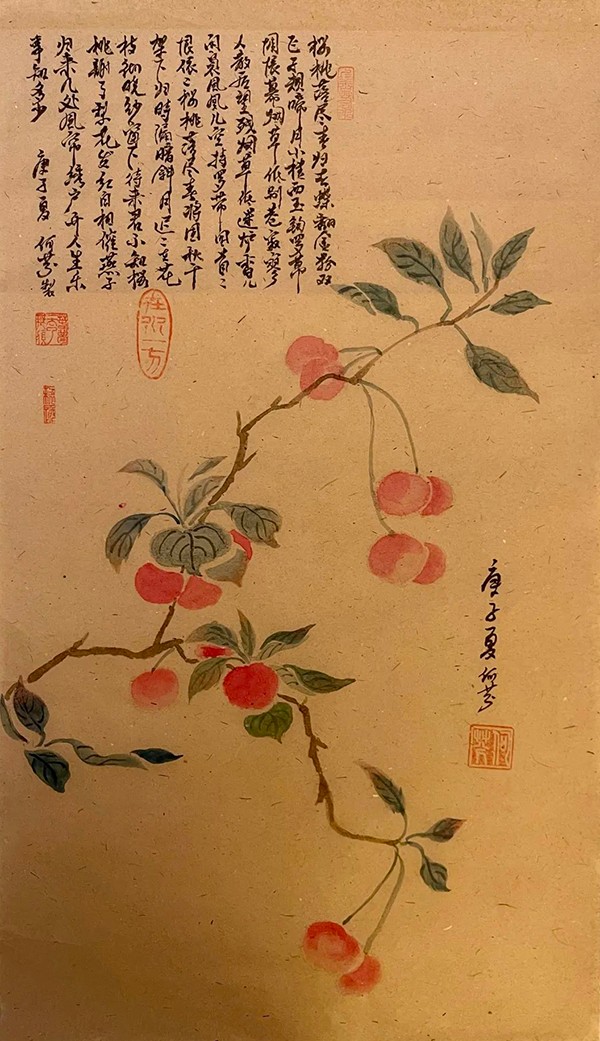 樱桃落尽春归去蝶翻金粉双
飞子规啼月小楼西玉钩罗幕
惆怅暮烟草低别巷寂寥
人散后望残烟草低迷炉香儿
闲袅凤凰儿空持罗带回首
恨依依樱桃落尽春将困秋千
架下归时漏暗斜月迟迟在花
枝彻晓纱窗下待来君不知樱
桃谢了梨花发红白相催燕子
归来几处风帘绣户开人生乐
事知多少 庚子夏 何 製
在水一方
庚子夏 何